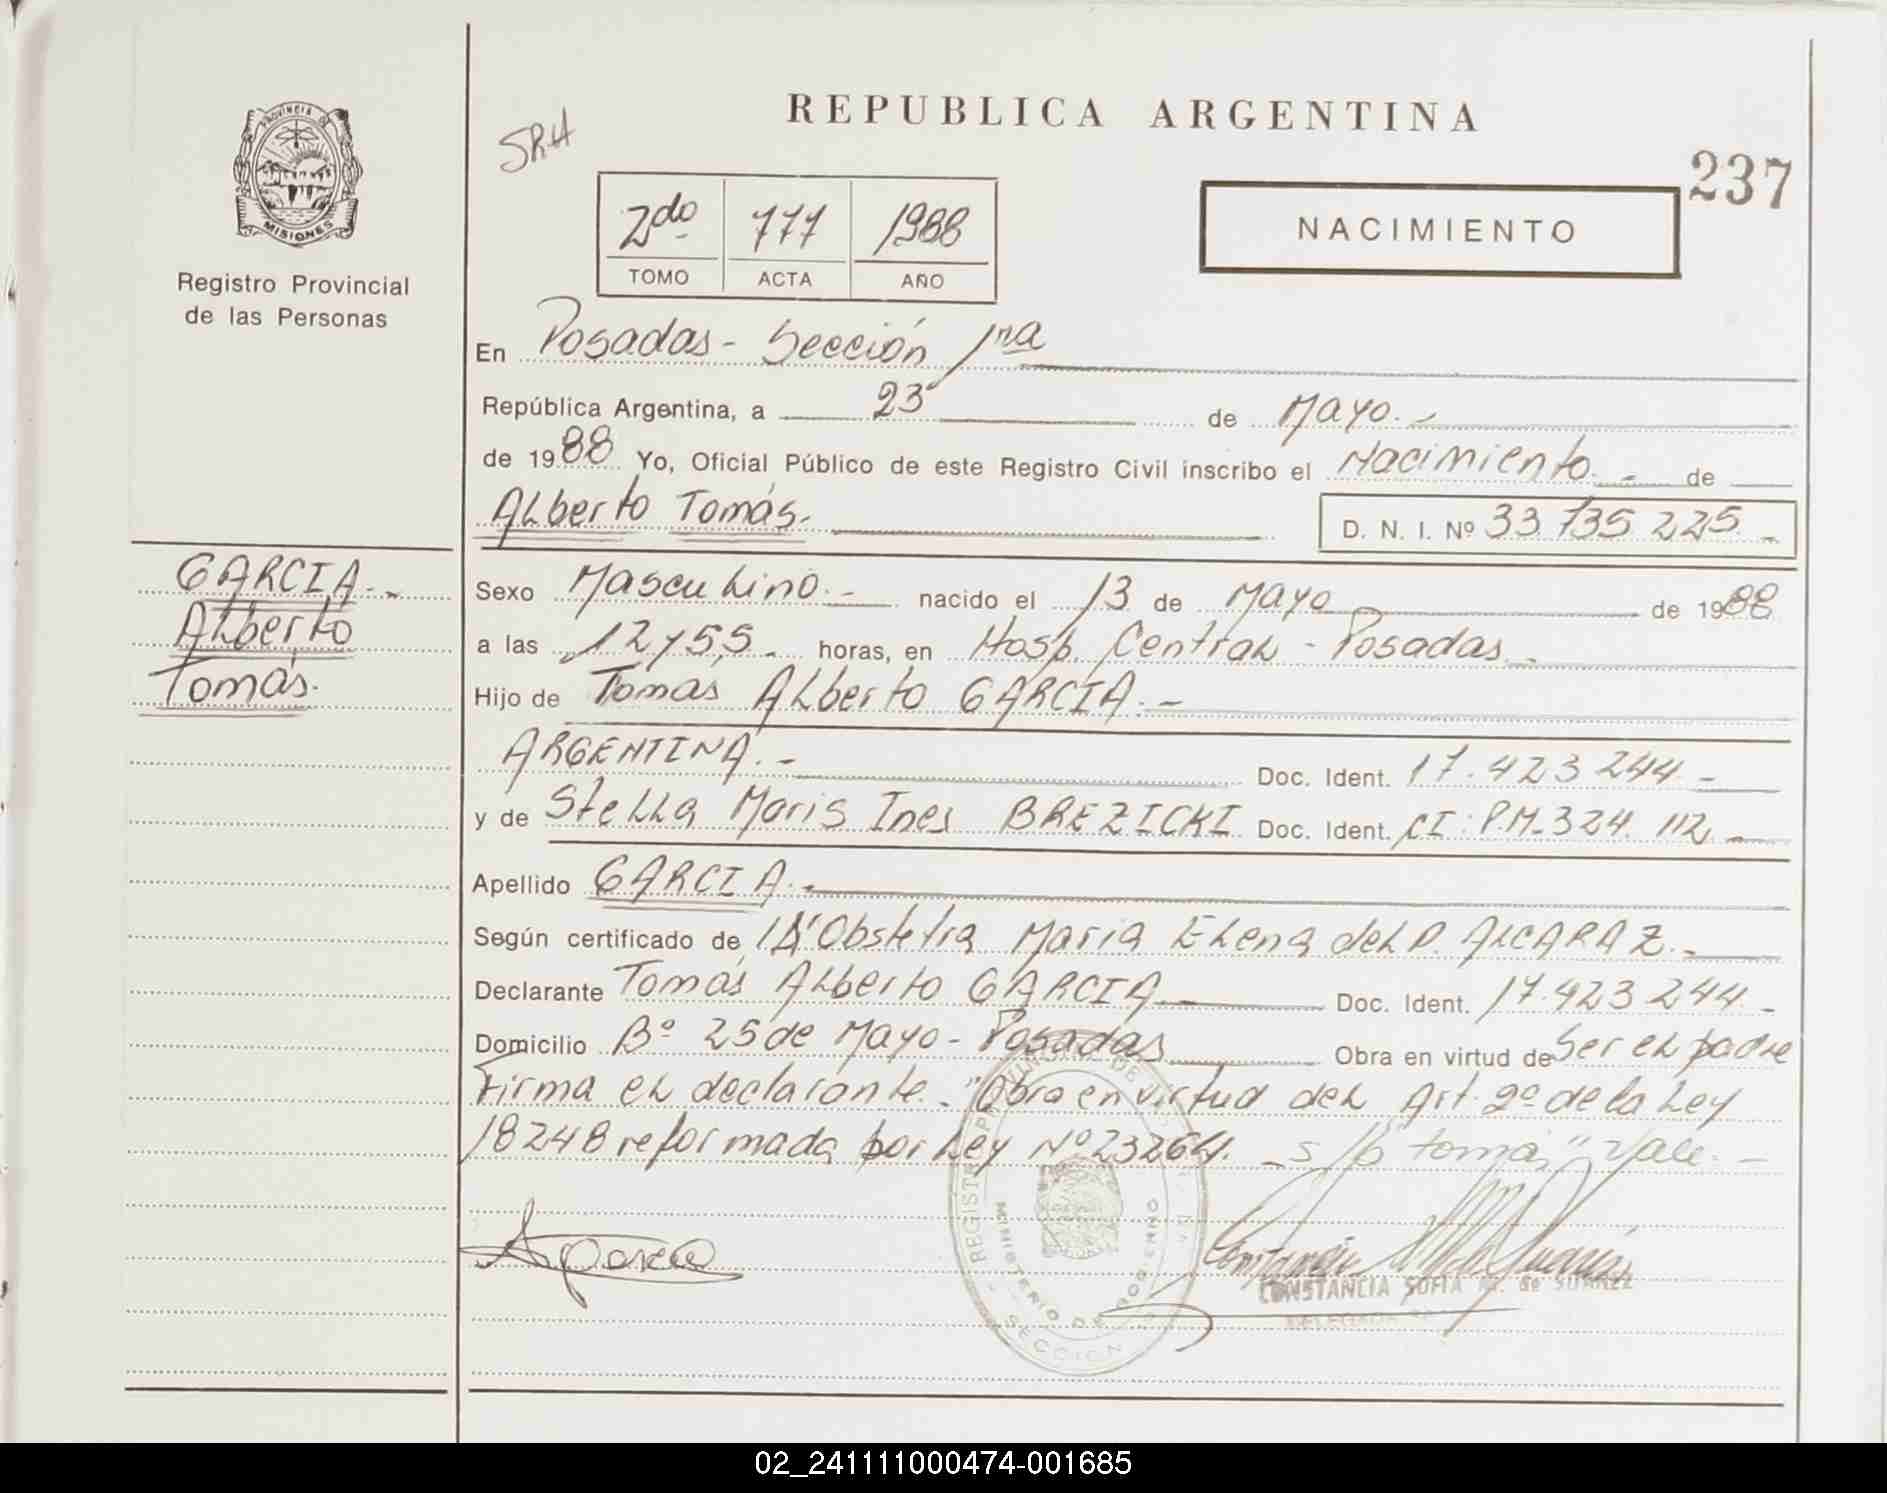 PROVINCIA DE
MISIONES
Registro Provincial
de las Personas
GARCIA.-
Alberto
Tomás.
SRH
REPUBLICA ARGENTINA
237
2do 777 1988
TOMO ACTA AÑO
NACIMIENTO
En Posadas - Sección 1ra
República Argentina, a 23 de Mayo.-
de 1988 Yo, Oficial Público de este Registro Civil inscribo el Nacimiento.- de
Alberto Tomás.- D. N. I. Nº 33 735 225.-
Sexo Masculino.- nacido el 13 de Mayo de 1988
a las 12 y 55,- horas, en Hosp. Central - Posadas.-
Hijo de Tomas Alberto GARCIA.-
ARGENTINA.- Doc. Ident. 17.423 244.-
y de Stella Maris Ines BREZICKI Doc. Ident. CI: P.M. 324. 112,-
Apellido GARCIA.-
Según certificado de la Obstetra Maria Elena del P. ALCARAZ.-
Declarante Tomás Alberto GARCIA.- Doc. Ident. 17.423 244.-
Domicilio Bº 25 de Mayo - Posadas Obra en virtud de Ser el padre
Firma el declarante.- "Obra en virtud del Art. 2º de la Ley
18248 reformada por Ley Nº 23264. - s/b "tomás" Vale.-
REGISTRO DE
MINISTERIO DE GOBIERNO
SECCION
CONSTANCIA SOFIA M. de SUAREZ
DELEGADA
02_241111000474-001685